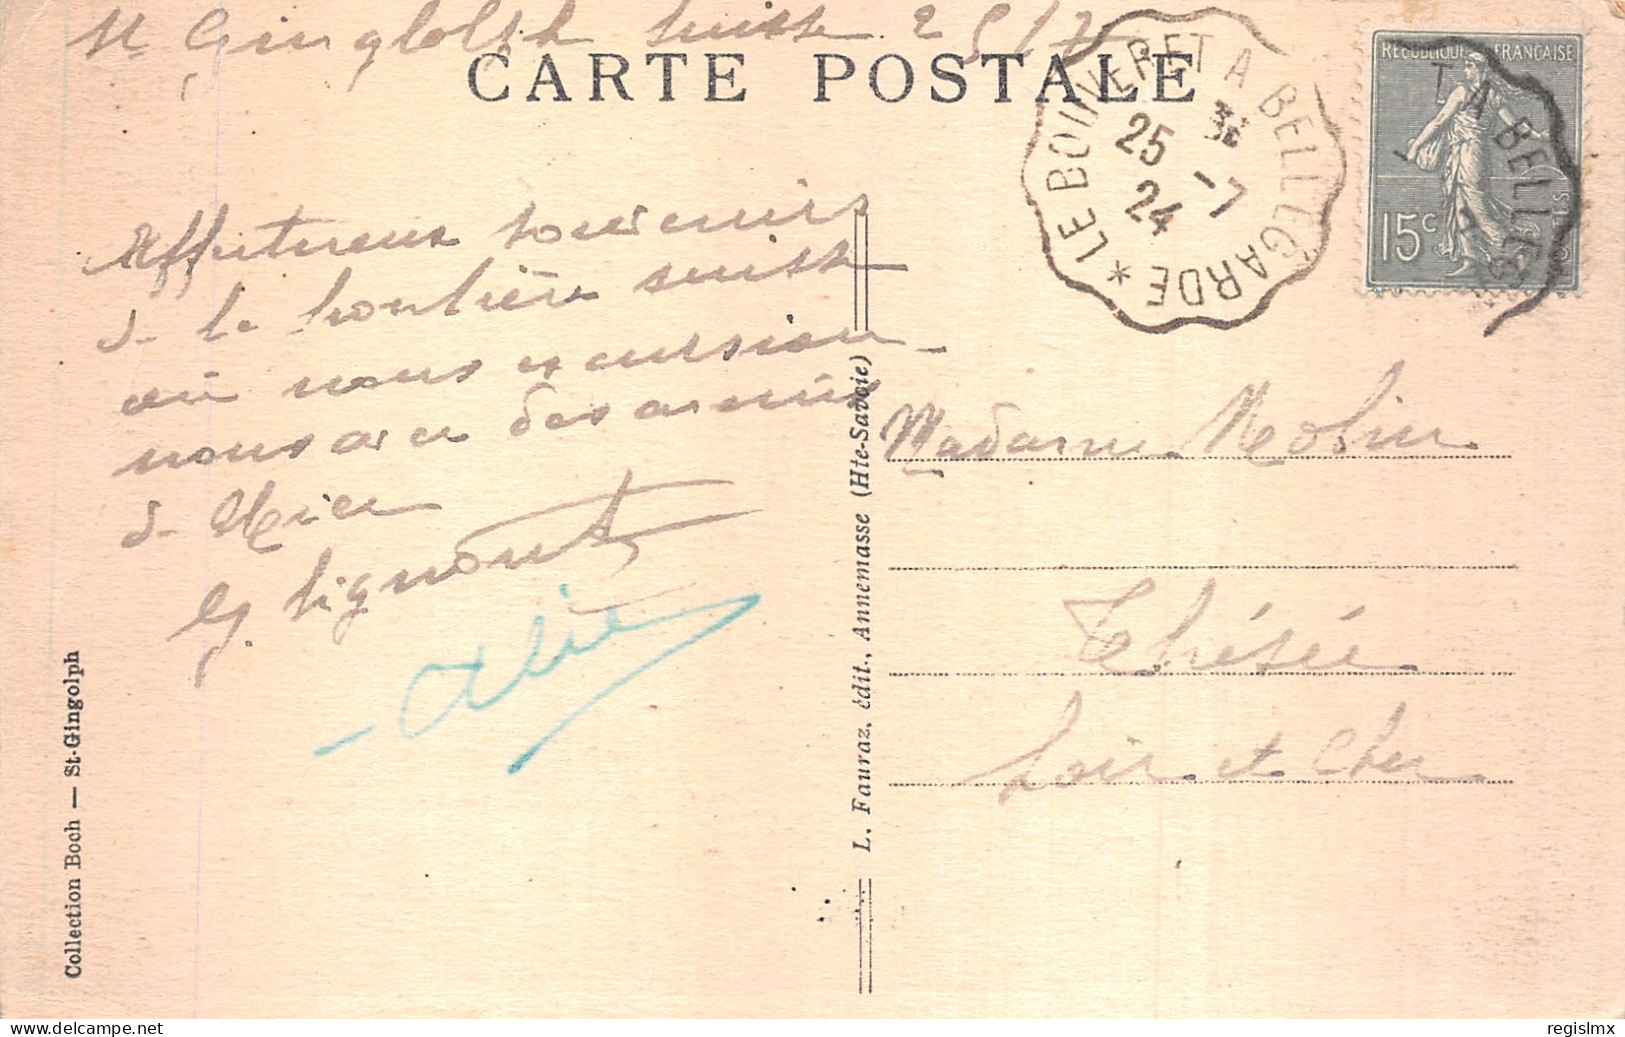 St Gingolph Suisse 25/7
CARTE POSTALE
LE BOUVERET A BELLEGARDE *
25 -7
24
REPUBLIQUE FRANÇAISE
15c
T A BELLE
Affectueux souvenirs
de la frontière suisse
où nous excursion-
nous avec des amis
de Nice
G. Lignont
Madame Robin
Thésée
Loir et Cher
Collection Boch — St-Gingolph
L. Fauraz, édit., Annemasse (Hte-Savoie)
regislmx